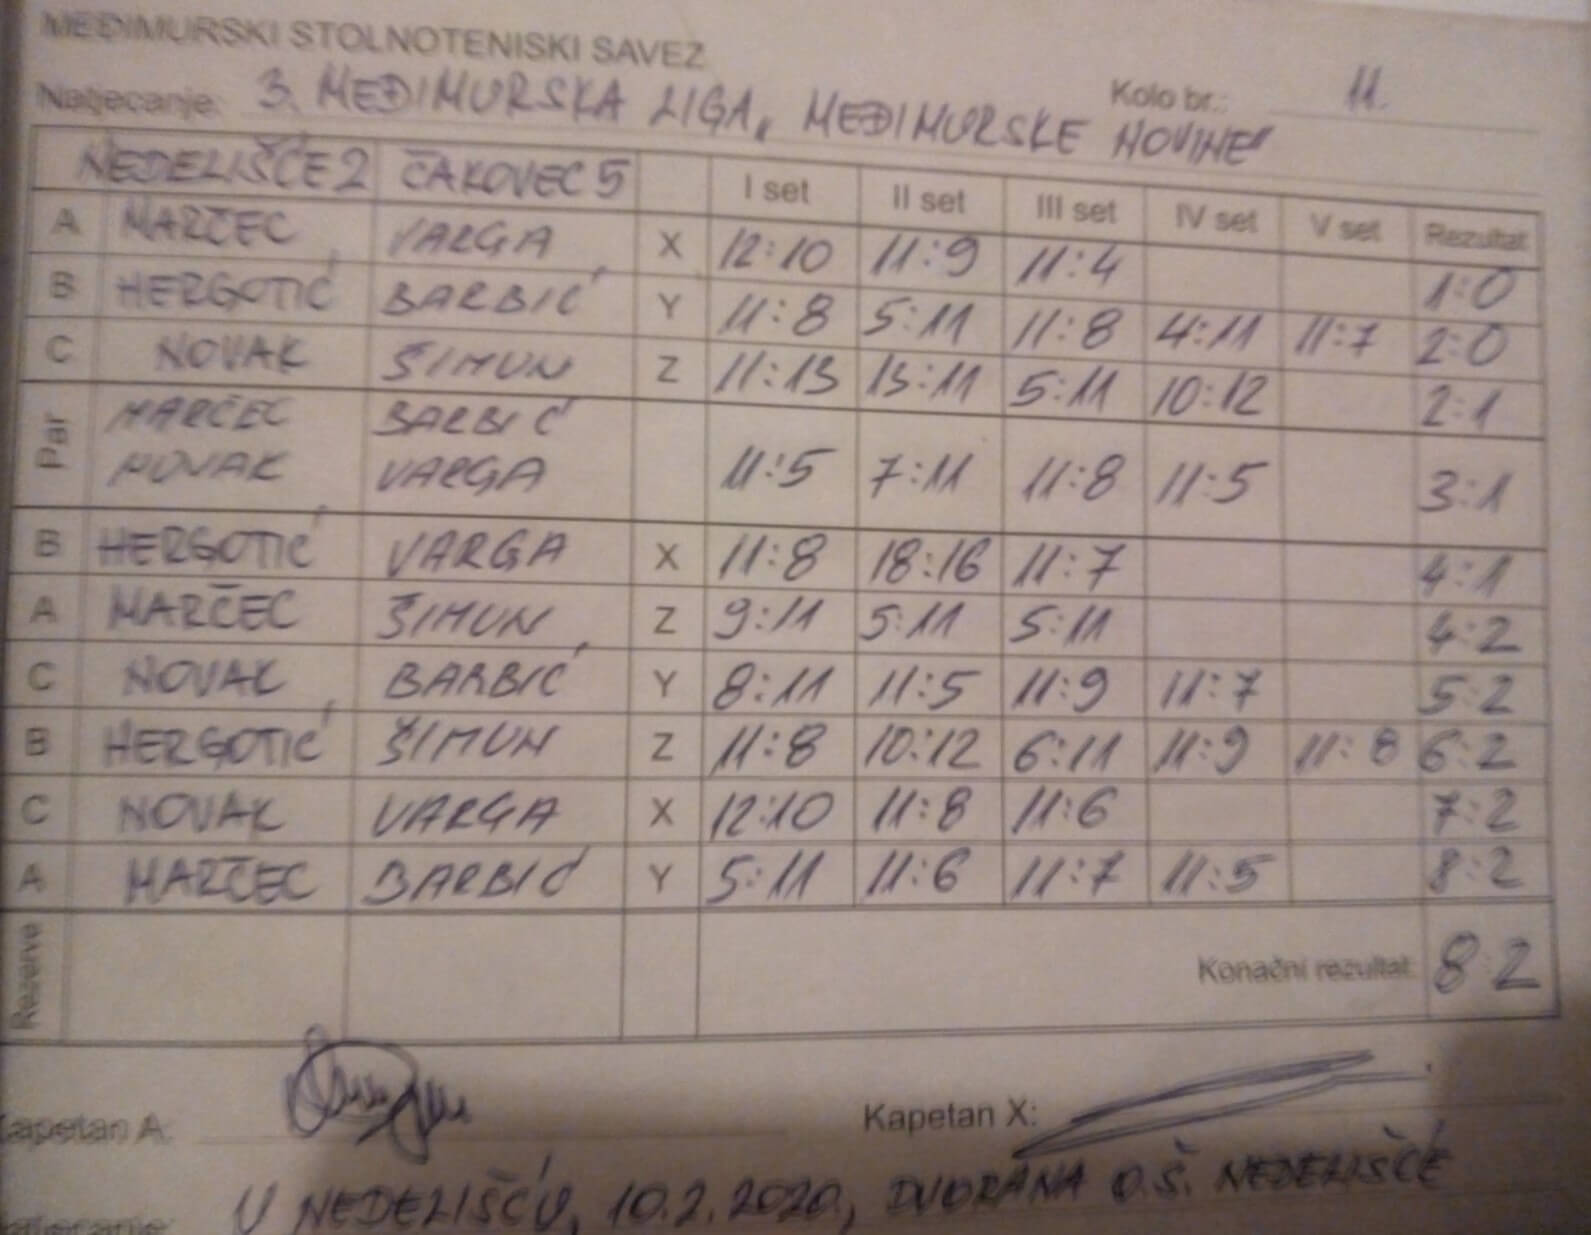 MEĐIMURSKI STOLNOTENISKI SAVEZ
Natjecanje: 3. MEĐIMURSKA LIGA „MEĐIMURSKE NOVINE" Kolo br.: 11.
NEDELIŠĆE 2 ČAKOVEC 5 I set II set III set IV set V set Rezultat
A MARČEC VARGA X 12:10 11:9 11:4 1:0
B HERGOTIĆ BARBIĆ Y 11:8 5:11 11:8 4:11 11:7 2:0
C NOVAK ŠIMUN Z 11:13 13:11 5:11 10:12 2:1
Par MARČEC BARBIĆ
NOVAK VARGA 11:5 7:11 11:8 11:5 3:1
B HERGOTIĆ VARGA X 11:8 18:16 11:7 4:1
A MARČEC ŠIMUN Z 9:11 5:11 5:11 4:2
C NOVAK BARBIĆ Y 8:11 11:5 11:9 11:7 5:2
B HERGOTIĆ ŠIMUN Z 11:8 10:12 6:11 11:9 11:8 6:2
C NOVAK VARGA X 12:10 11:8 11:6 7:2
A MARČEC BARBIĆ Y 5:11 11:6 11:7 11:5 8:2
Rezerve Konačni rezultat 8:2
Kapetan A: Kapetan X:
U NEDELIŠĆU, 10.2.2020., DVORANA O.Š. NEDELIŠĆE